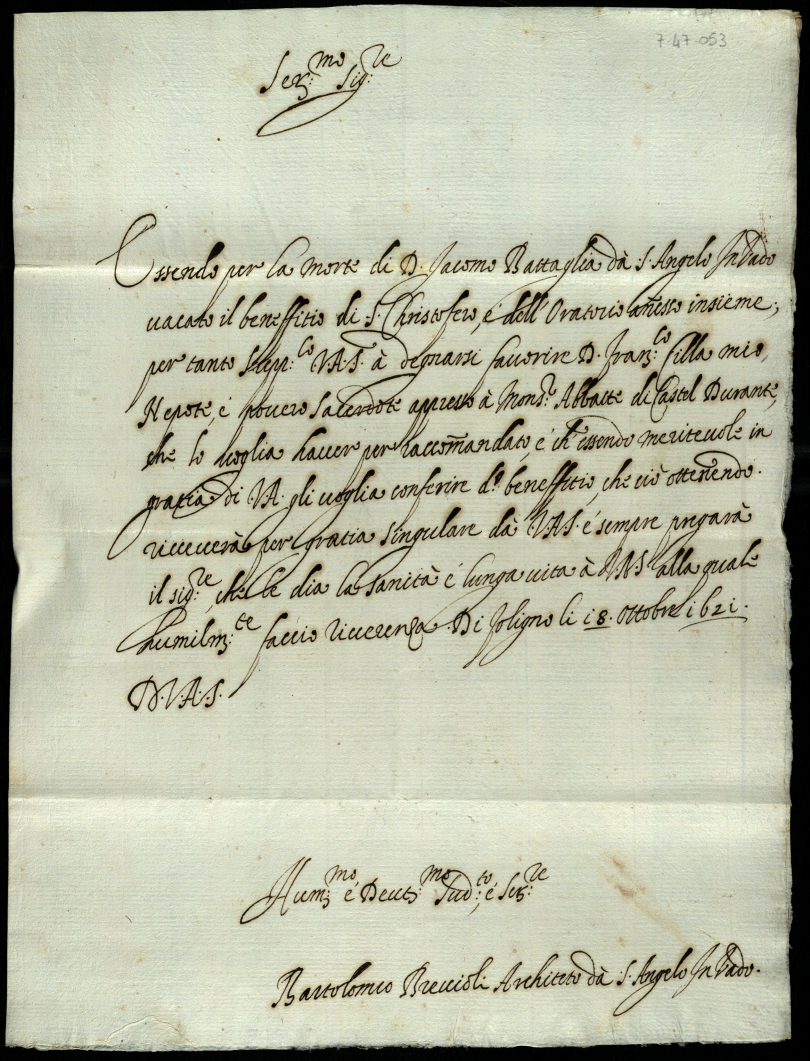 7-47-053
Ser:mo Sig:re
Essendo per la morte di D. Jacomo Battaglia dà S. Angelo In Vado
vacato il beneffitio di S. Christofero, é dell'Oratorio añesso insieme;
per tanto Supp:co V.A.S. à degnarsi favorire D. Fran:co Cilla mio
Nepote, é povero sacerdote appresso à Mons:r Abbate di Castel Durante,
che lo voglia haver per raccom̃andato, é ch'essendo meritevole in
gratia di V.A. gli voglia conferire d:o beneffitio, che ciò ottenendo
riceverà per gratia singulare dà V.A.S. é sempre pregarà
il sig:re, che le dia la sanità é lunga vita à V.A.S. alla quale
humilm:te faccio riverenza. Di foligno li i8. Ottobre i62i.
D.V.A.S.
Hum:mo é Devot:mo Sud:to, é Ser:re
Bartolomeo Breccioli Architeto dà S. Angelo In Vado.